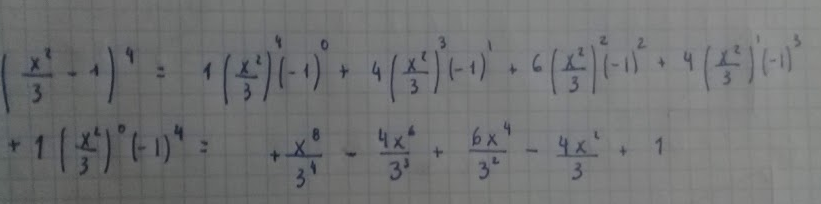 (x²/3 - 1)⁴ = 1(x²/3)⁴(-1)⁰ + 4(x²/3)³(-1)¹ + 6(x²/3)²(-1)² + 4(x²/3)¹(-1)³
+ 1(x²/3)⁰(-1)⁴ = + x⁸/3⁴ - 4x⁶/3³ + 6x⁴/3² - 4x²/3 + 1